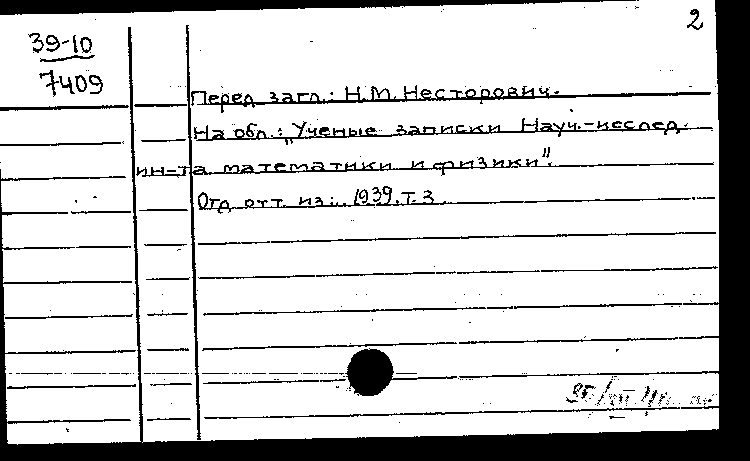 2
39-10
7409
Перед загл.: Н.М. Несторович.
На обл.: „Ученые записки Науч.-исслед.
ин-та математики и физики".
Отд. отт. из:. 1939, т. 3